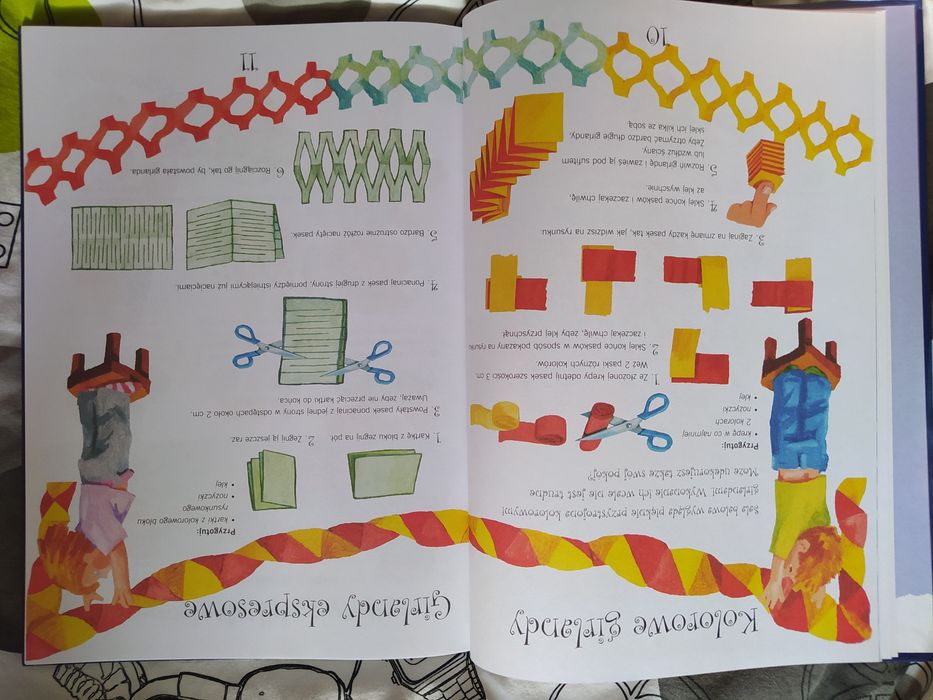 Kolorowe girlandy
Sala balowa wygląda pięknie przystrojona kolorowymi
girlandami! Wykonanie ich wcale nie jest trudne.
Może udekorujesz także swój pokój?
Przygotuj:
• krepę w co najmniej
2 kolorach
• nożyczki
• klej
1. Ze złożonej krepy udetnij pasek szerokości 3 cm.
Weź 2 paski różnych kolorów.
2. Sklej końce pasków w sposób pokazany na rysunku
i zaczekaj chwilę, żeby klej przyschnął.
3. Zaginaj na zmianę każdy pasek tak, jak widzisz na rysunku.
4. Sklej końce pasków i zaczekaj chwilę,
aż klej wyschnie.
5. Rozwiń girlandę i zawieś ją pod sufitem
lub wzdłuż ściany.
Żeby otrzymać bardzo długie girlandy,
sklej ich kilka ze sobą.
10
Girlandy ekspresowe
Przygotuj:
• kartki z kolorowego bloku
rysunkowego
• nożyczki
• klej
1. Kartkę z bloku zegnij na pół.
2. Zegnij ją jeszcze raz.
3. Powstały pasek ponacinaj z jednej strony w odstępach około 2 cm.
Uważaj, żeby nie przeciąć kartki do końca.
4. Ponacinaj pasek z drugiej strony, pomiędzy istniejącymi już nacięciami.
5. Bardzo ostrożnie rozłóż nacięty pasek.
6. Rozciągnij go tak, by powstała girlanda.
11